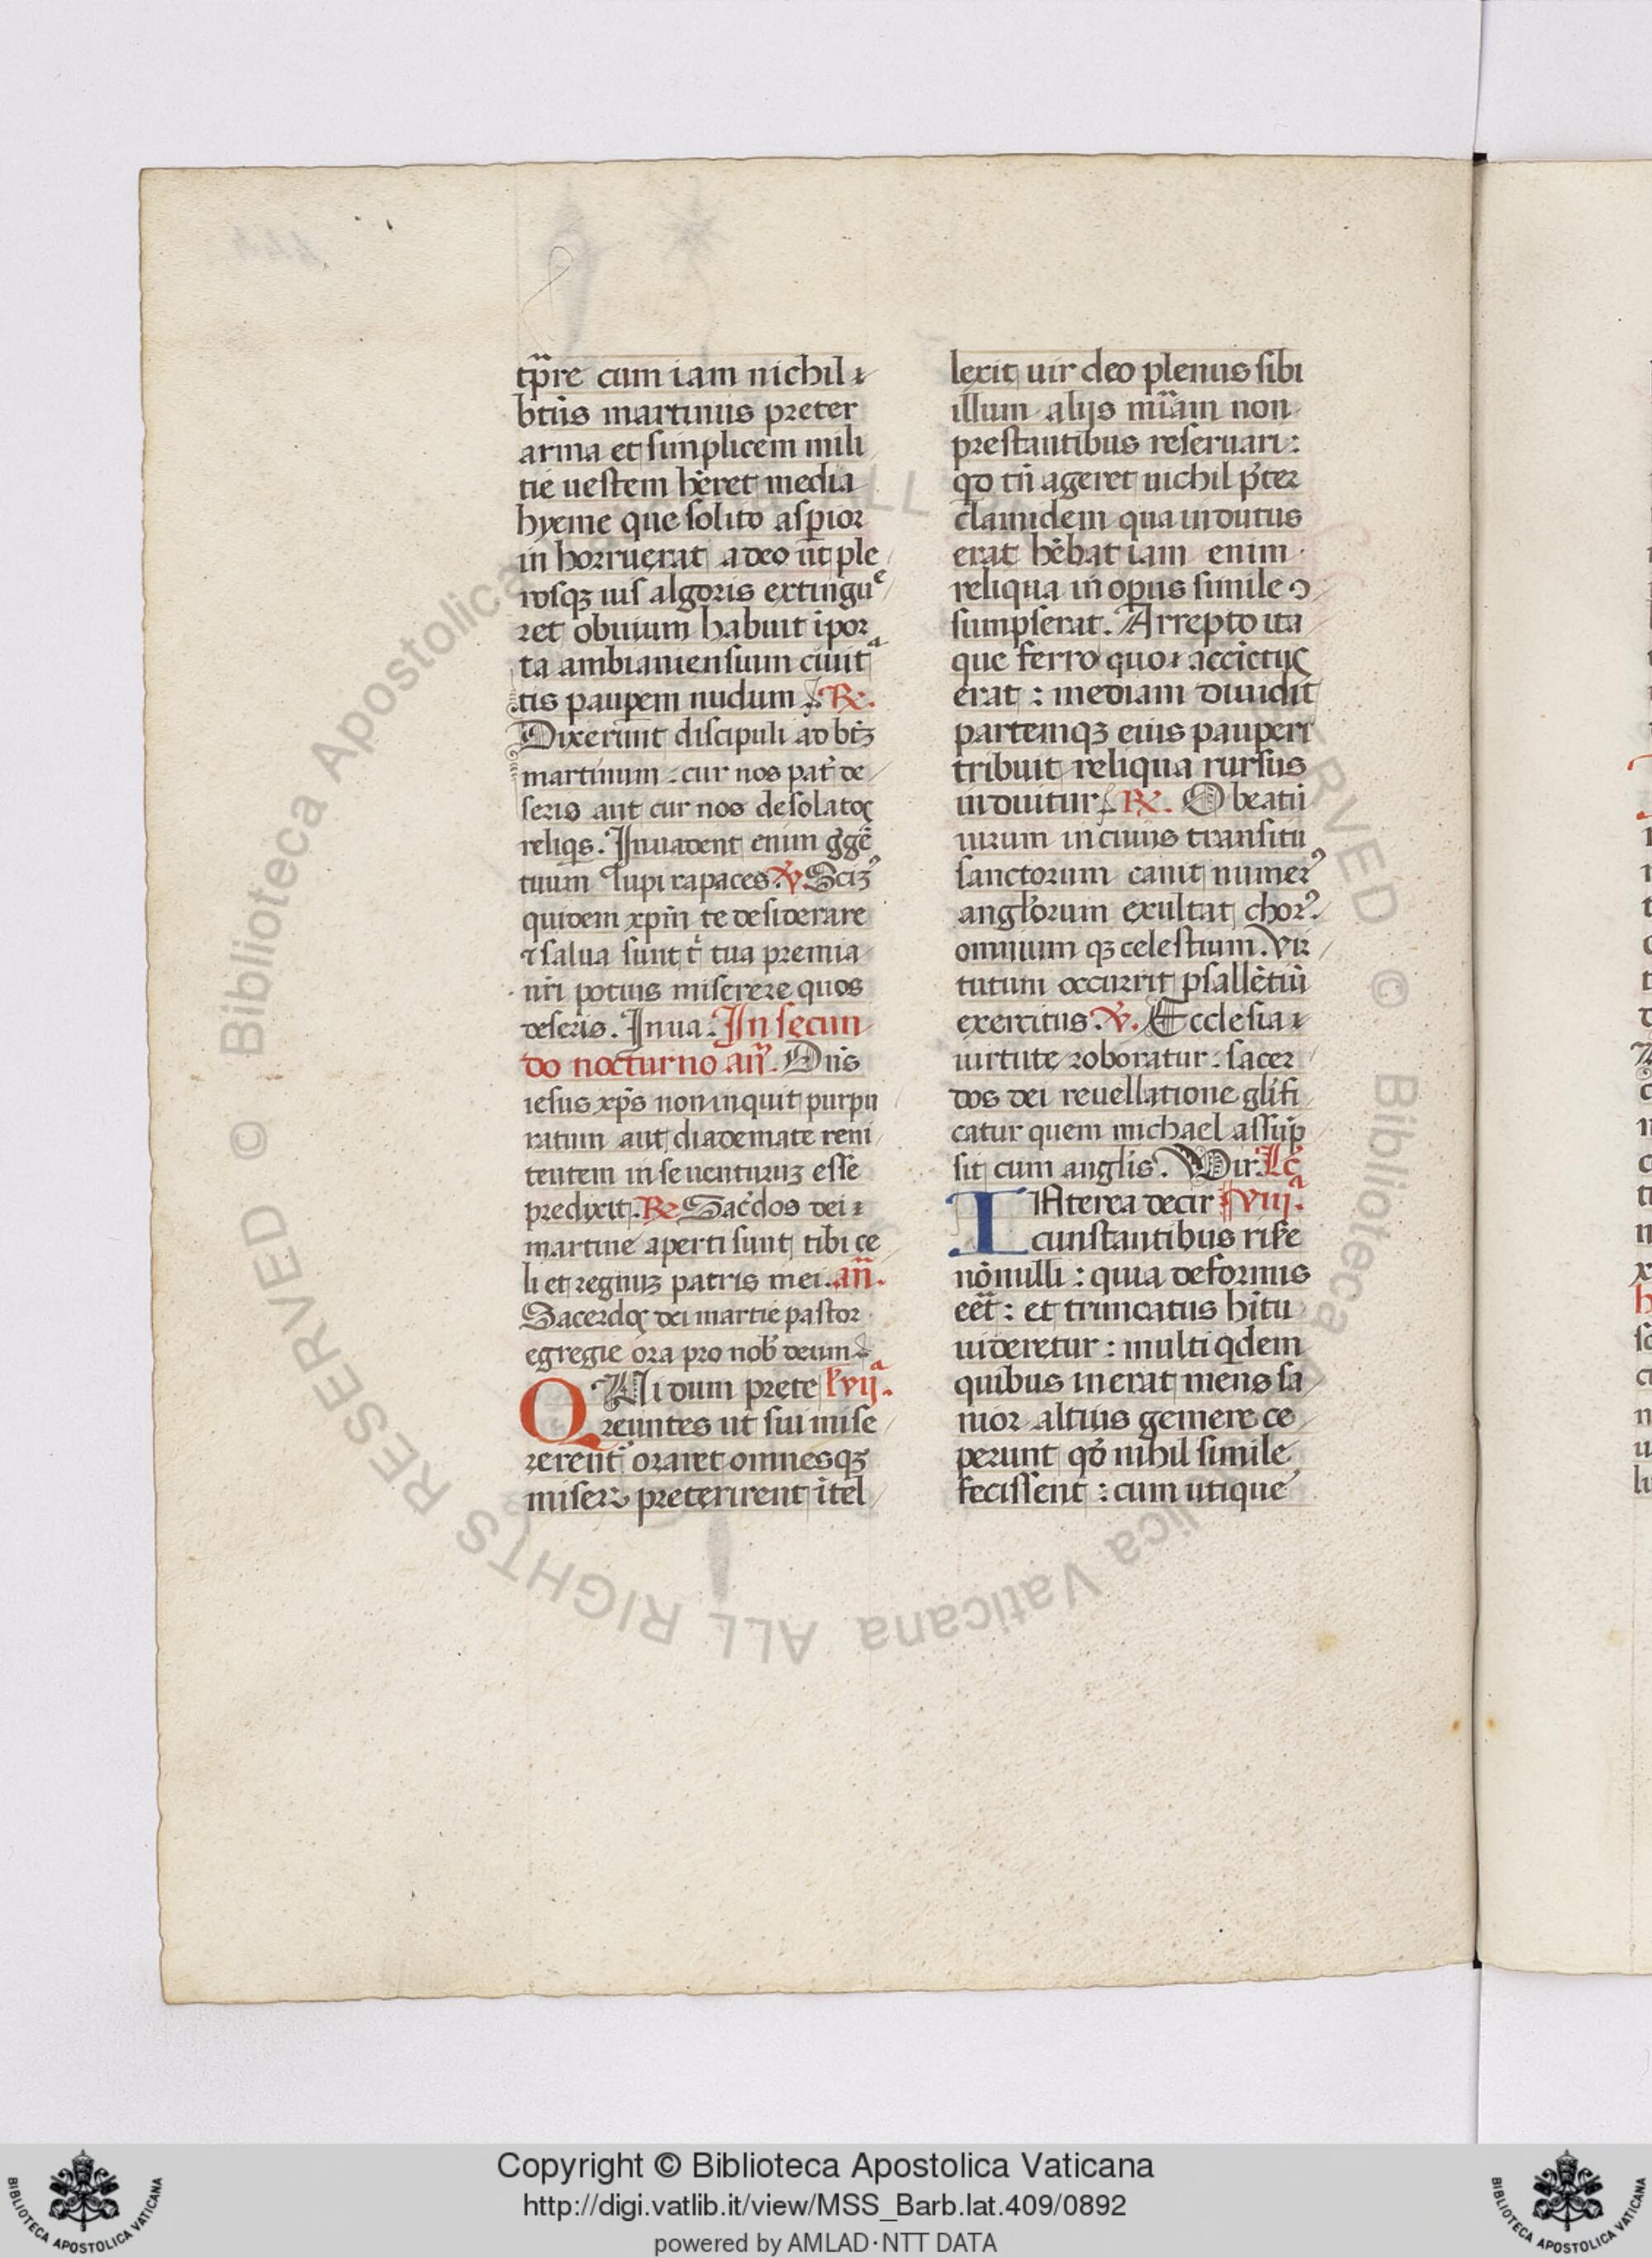 tp̃re cum iam nichil
bt̃us martinus preter
arma et simplicem mili
tie uestem hēret media
hyeme que solito asp̱ior
in horruerat adeo ut ple
rosqꝫ uis algoris extingue
ret obuium habuit ī por
ta ambianiensium ciuita
tis paup̱em nudum ℟.
Dixerunt discipuli ad btꝫ
martinum : cur nos pat̃ de
seris aut cur nos desolatos
reliqs. Inuadent enim g̃ge
tuum lupi rapaces. ℣. Scimꝰ
quidem xpm̄ te desiderare
⁊ salua sunt t̄ tua premia
nr̄i potius miserere quos
deseris. Inua. In secun
do nocturno an̄. Dn̄s
iesus xp̄s non inquit purpu
ratum aut diademate reni
tentem in se uenturuꝫ esse
predixit. ℟. Sac̃dos dei
martine aperti sunt tibi ce
li et regnuꝫ patris mei. an̄.
Sacerdos dei martiē pastor
egregie ora pro nob̄ deum
QUi dum prete lc̄ vijᵃ.
reuntes ut sui mise
rerent̃ oraret omnesqꝫ
miserꝝ preterirent ītel
lexit uir deo plenus sibi
illum alijs mīam non
prestantibus reseruari :
qd tn̄ ageret nichil p̄ter
clamidem qua indutus
erat hēbat iam enim
reliqua in opus simile ↄ
sumpserat. Arrepto ita
que ferro quo accīctus
erat : mediam diuidit
partemqꝫ eius pauperi
tribuit reliqua rursus
induitur. ℟. O beatū
uirum in cuius transitu
sanctorum canit numerꝰ
angl̃orum exultat chorꝰ.
omnium qꝫ celestium. vir
tutum occurrit psallētiū
exercitus. ℣. Ecclesia
uirtute roboratur : sacer
dos dei reuellatione gl̄ifi
catur quem michael assūp
sit cum angl̄is. Uir. Lc̄
INterea de cir viijᵃ.
cunstantibus risēre
nōnulli : quia deformis
eēt : et truncatus hītu
uideretur : multi qdem
quibus inerat mens sa
nior altius gemere ce
perunt qd nihil simile
fecissent : cum utique
© Biblioteca Apostolica Vaticana ALL RIGHTS RESERVED
Copyright © Biblioteca Apostolica Vaticana
http://digi.vatlib.it/view/MSS_Barb.lat.409/0892
powered by AMLAD·NTT DATA
BIBLIOTECA APOSTOLICA VATICANA
BIBLIOTECA APOSTOLICA VATICANA